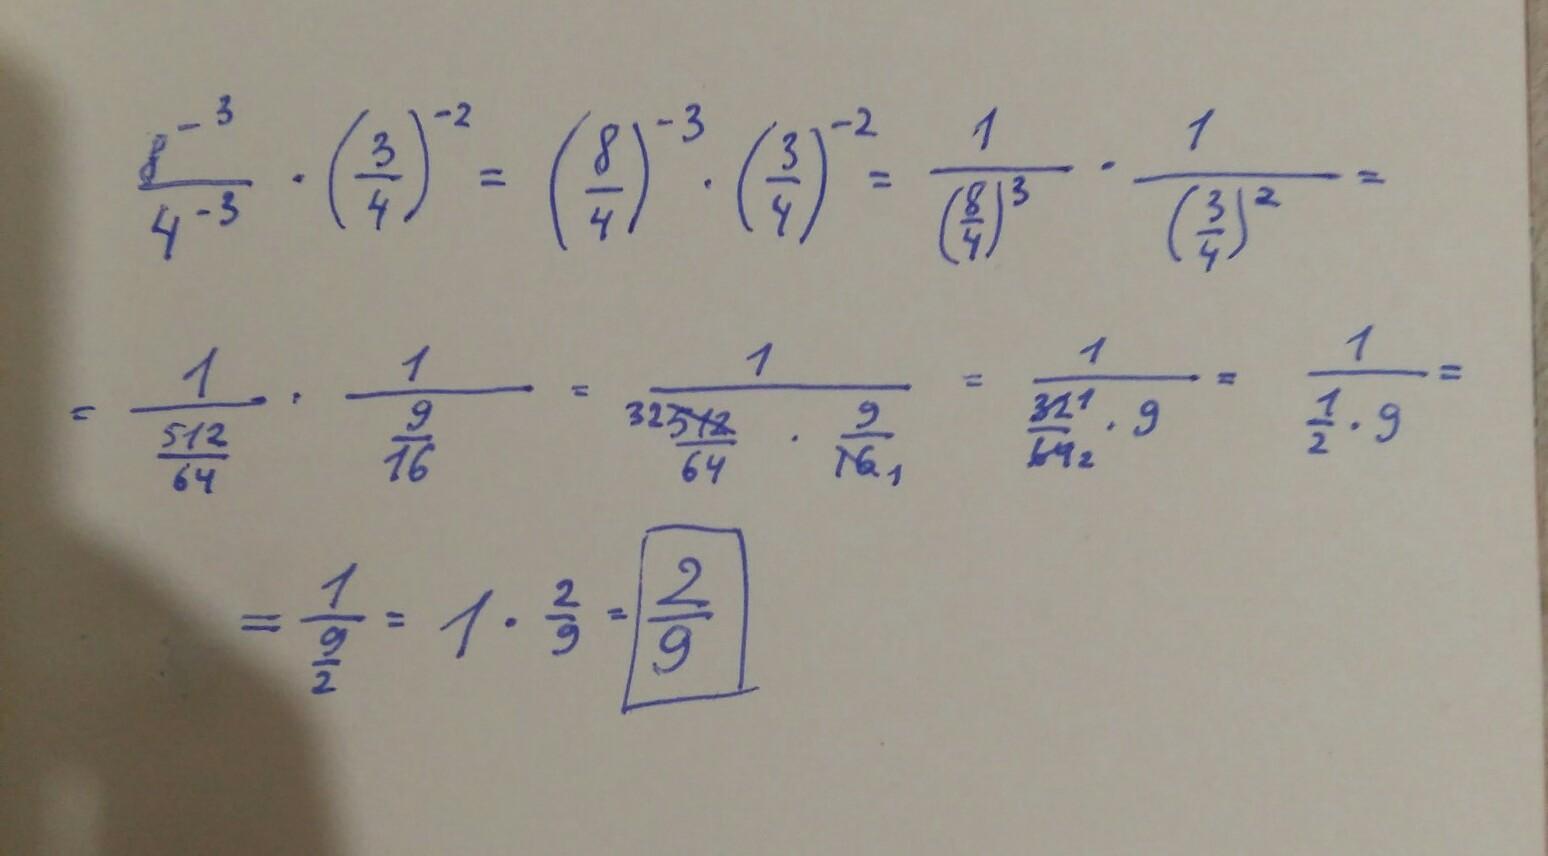 8^-3 / 4^-3 · (3/4)^-2 = (8/4)^-3 · (3/4)^-2 = 1/(8/4)^3 · 1/(3/4)^2 =
= 1/(512/64) · 1/(9/16) = 1/(32 512/64 · 9/16 1) = 1/(32 1/64 2 · 9) = 1/(1/2 · 9) =
= 1/(9/2) = 1 · 2/9 = 2/9